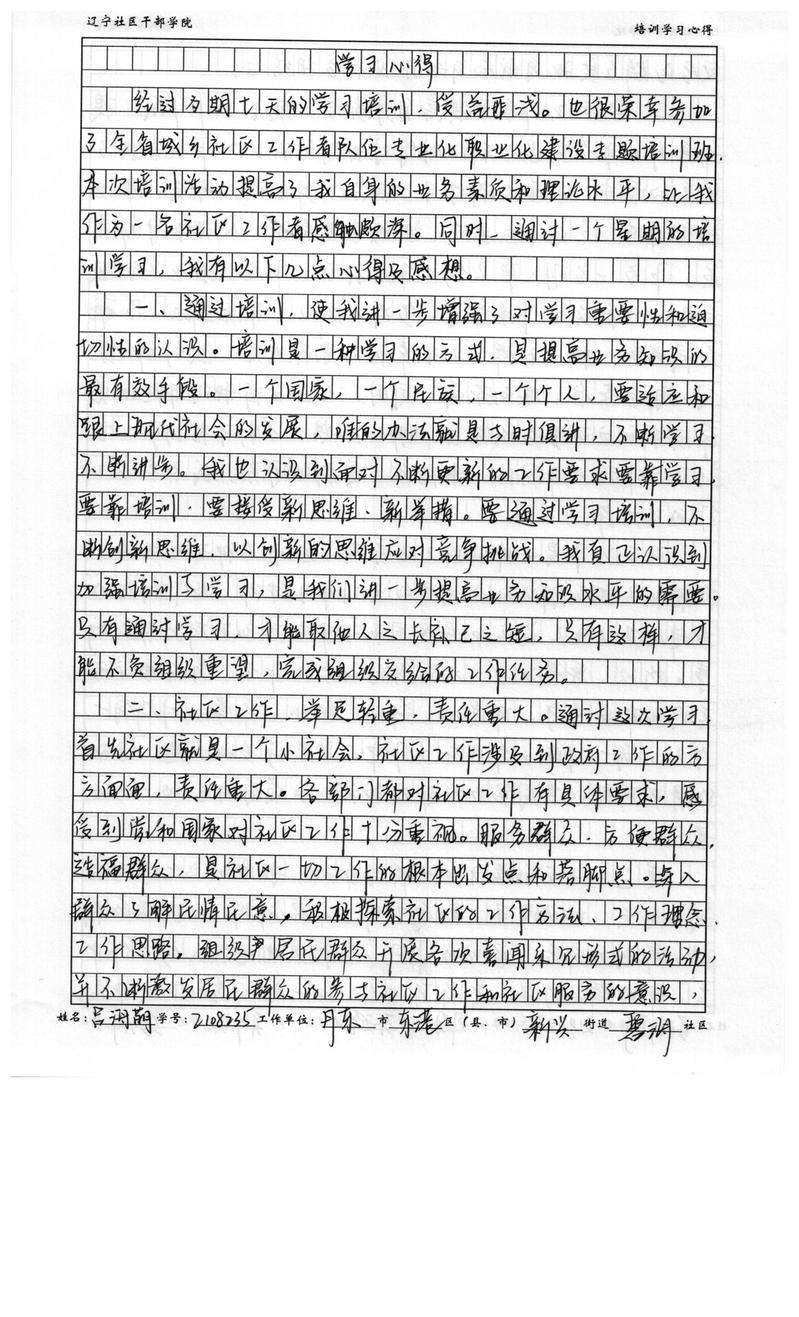 辽宁社区干部学院
培训学习心得
学习心得
经过为期七天的学习培训，受益匪浅。也很荣幸参加
了全省城乡社区工作者队伍专业化职业化建设专题培训班.
本次培训活动提高了我自身的业务素质和理论水平，让我
作为一名社区工作者感触颇深。同时，通过一个星期的培
训学习，我有以下几点心得及感想。
一、通过培训，使我进一步增强了对学习重要性和迫
切性的认识。培训是一种学习的方式，是提高业务知识的
最有效手段。一个国家，一个民族，一个个人，要适应和
跟上现代社会的发展，唯的办法就是与时俱进，不断学习，
不断进步。我也认识到面对不断更新的工作要求要靠学习，
要靠培训，要接受新思维、新举措。要通过学习培训，不
断创新思维，以创新的思维应对竞争挑战。我真正认识到
加强培训与学习，是我们进一步提高业务知识水平的需要。
只有通过学习，才能取他人之长补己之短，只有这样，才
能不负组织重望，完成组织交给的工作任务。
二、社区工作，举足轻重，责任重大。通过这次学习
首先社区就是一个小社会，社区工作涉及到政府工作的方
方面面，责任重大。各部门都对社区工作有具体要求，感
受到党和国家对社区工作十分重视。服务群众，方便群众，
造福群众，是社区一切工作的根本出发点和落脚点。深入
群众了解民情民意，积极探索社区的工作方法、工作理念、
工作思路。组织居民群众开展各次喜闻乐见形式的活动，
并不断激发居民群众的参与社区工作和社区服务的意识，
姓名：吕 萌 学号：2108235 工作单位：丹东 市 东港 区（县、市） 新兴 街道 碧湖 社区